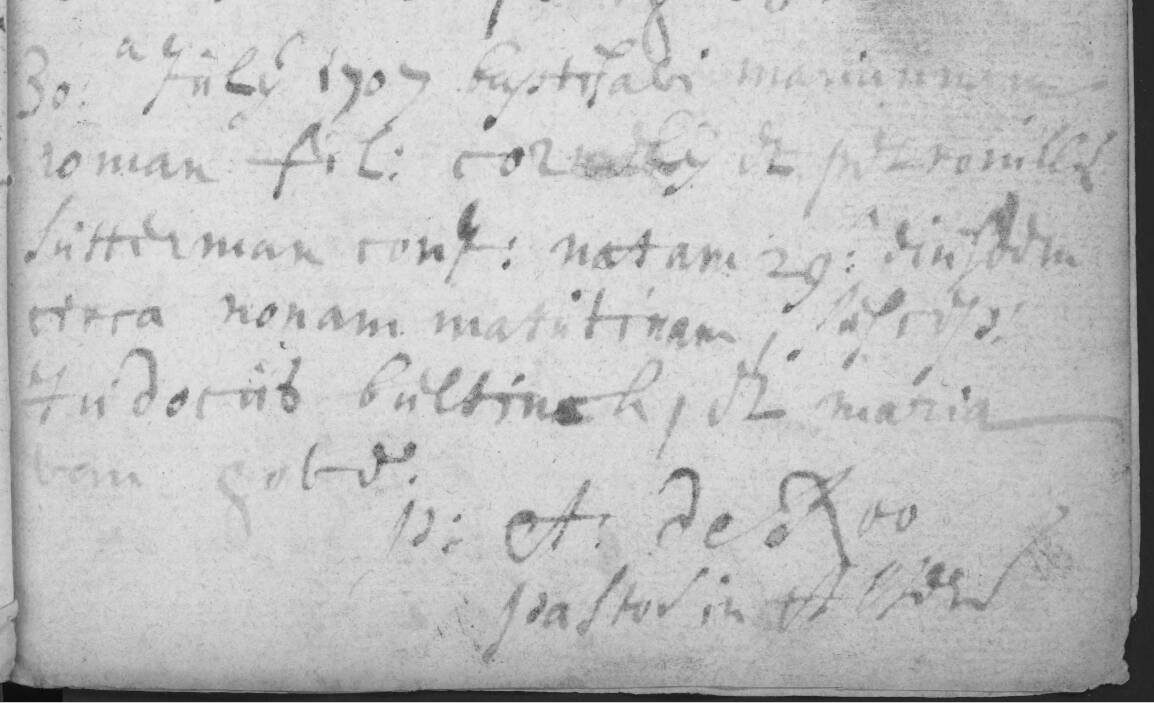 30:a Julÿ 1707 baptisavi mariannam
roman fil: cornelÿ et petronillæ
sütterman conj: natam 29:a eiüsdem
circa nonam matütinam, süscep:
Judocüs bültinck, et maria
van
p: A: de Roo
pastor in